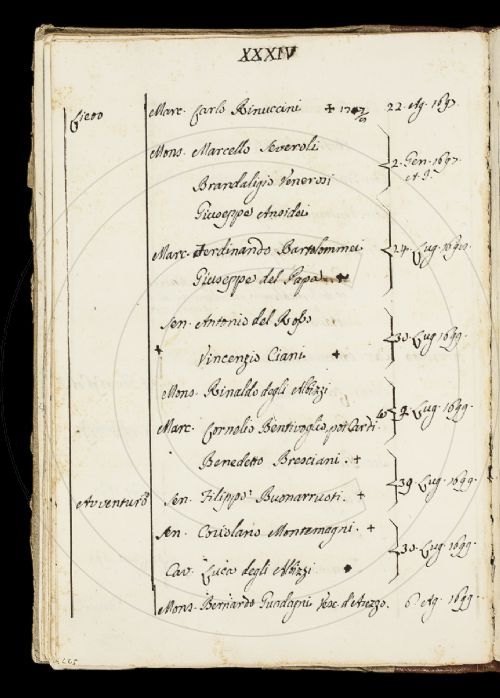 XXXIV
Lieto Marc. Carlo Rinuccini + 22. Ag. 1697
Mons. Marcello Severoli
Brandaligio Venerosi 2. Gen. 1697.
Giuseppe Ansidei
Marc. Ferdinando Bartolommei 24. Lug.
Giuseppe del Papa +
Sen. Antonio del Rosso
Vincenzio Ciani + 30. Lug. 1699.
Mons. Rinaldo degli Albizzi
Marc. Cornelio Bentivoglio, poi Card. Lug. 1699.
Benedetto Bresciani. +
Avventuro Sen. Filippo Buonarruoti. + 39. Lug. 1699.
Sen. Coriolano Montemagni. +
Cav. Luca degli Albizzi 30. Lug. 1699.
Mons. Bernardo Guadagni Vesc. d'Arezzo. 6. Ag. 1699.